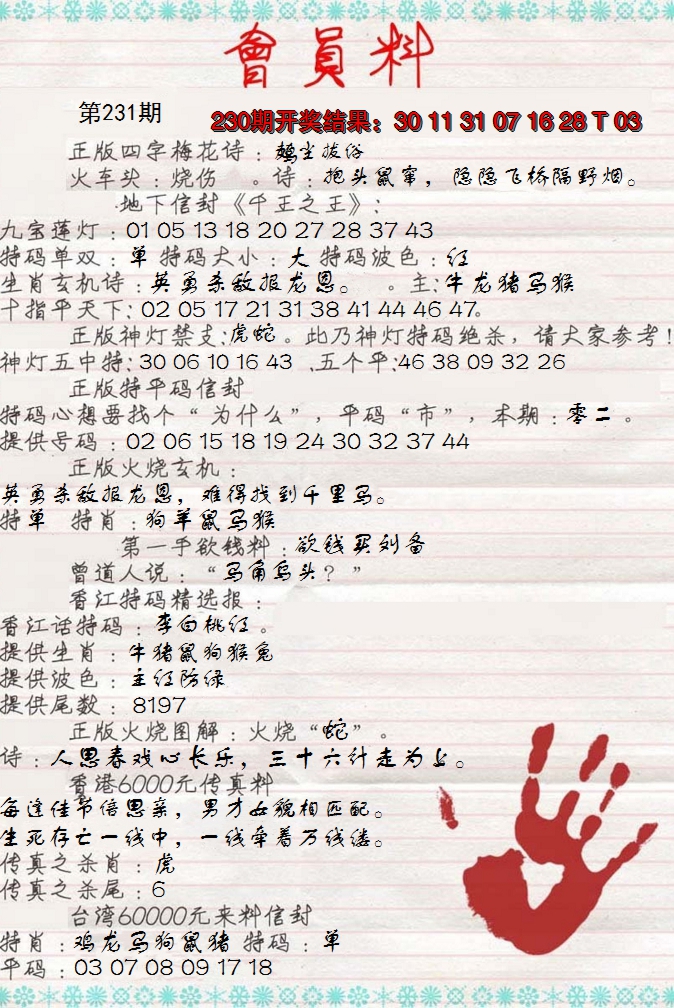 會員料
第231期
230期开奖结果：30 11 31 07 16 28 T 03
正版四字梅花诗：超尘拔俗
火车头：烧伤　。诗：抱头鼠窜，隐隐飞桥隔野烟。
地下信封《千王之王》：
九宝莲灯：01 05 13 18 20 27 28 37 43
特码单双：单 特码大小：大 特码波色：红
生肖玄机诗：英勇杀敌报龙恩。　。主:牛龙猪马猴
十指平天下: 02 05 17 21 31 38 41 44 46 47。
正版神灯禁支:虎蛇。此乃神灯特码绝杀，请大家参考!
神灯五中特: 30 06 10 16 43 、五个平:46 38 09 32 26
正版特平码信封
特码心想要找个“为什么”，平码“市”，本期：零二。
提供号码：02 06 15 18 19 24 30 32 37 44
正版火烧玄机：
英勇杀敌报龙恩，难得找到千里马。
特单　特肖：狗羊鼠马猴
第一手欲钱料：欲钱买刘备
曾道人说：“马角乌头？”
香江特码精选报：
香江话特码：李白桃红。
提供生肖：牛猪鼠狗猴兔
提供波色：主红防绿
提供尾数：8197
正版火烧图解：火烧“蛇”。
诗：人思春戏心长乐，三十六计走为上。
香港6000元传真料
每逢佳节倍思亲，男才女貌相匹配。
生死存亡一线中，一线牵着万线缕。
传真之杀肖：虎
传真之杀尾：6
台湾60000元来料信封
特肖：鸡龙马狗鼠猪 特码：单
平码：03 07 08 09 17 18